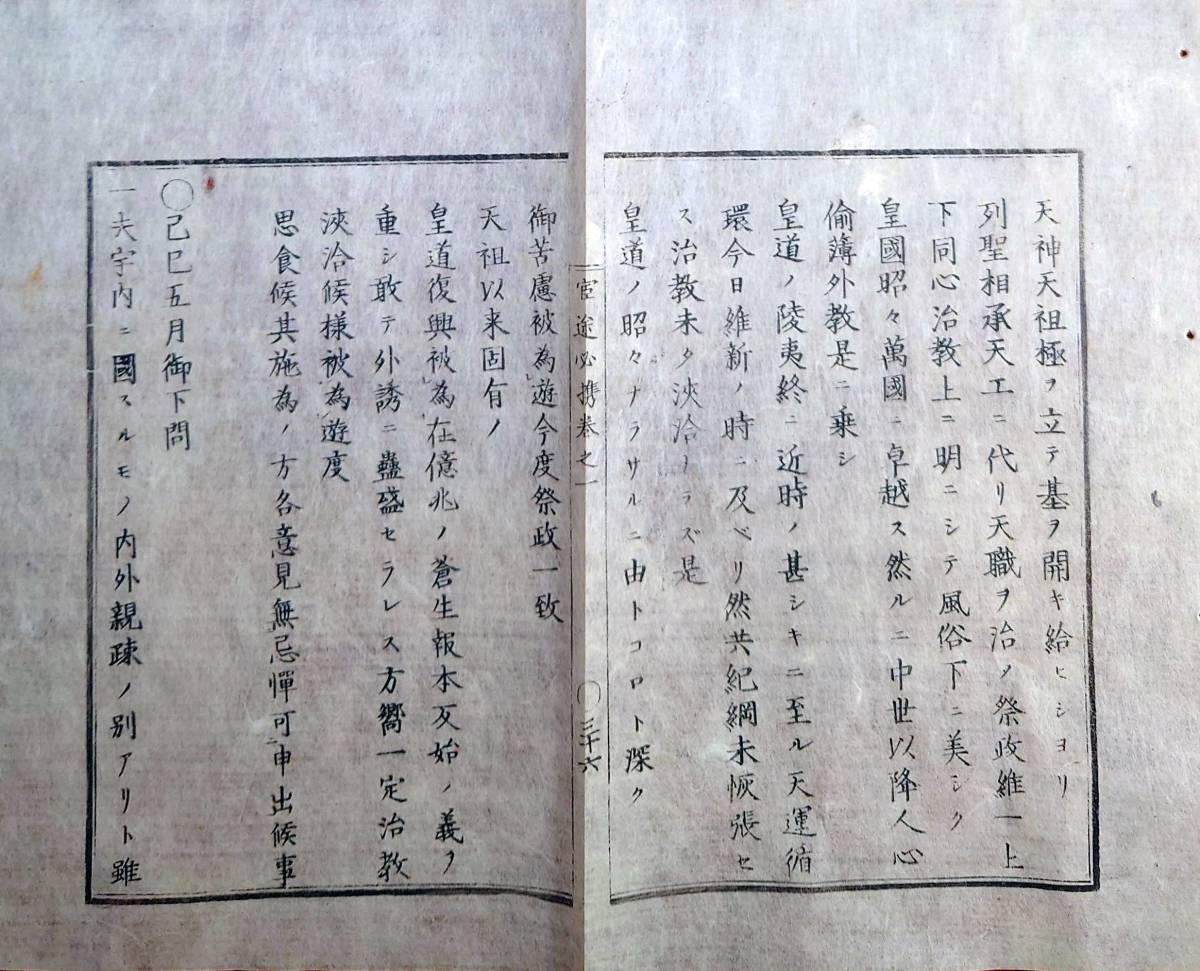 天神天祖極ヲ立テ基ヲ開キ給ヒシヨリ
列聖相承天工ニ代リ天職ヲ治メ祭政維一上
下同心治教上ニ明ニシテ風俗下ニ美シク
皇國昭々萬國ニ卓越ス然ルニ中世以降人心
偷薄外教是ニ乗シ
皇道ノ陵夷終ニ近時ノ甚シキニ至ル天運循
環今日維新ノ時ニ及ベリ然共紀綱未恢張セ
ス治教未タ浹洽ナラズ是
皇道ノ昭々ナラサルニ由トコロト深ク
官途必携巻之一
〇三十六
御苦慮被為遊今度祭政一致
天祖以来固有ノ
皇道復興被為在億兆ノ蒼生報本反始ノ義ヲ
重シ敢テ外誘ニ蠱盛セラレス方嚮一定治教
浹洽候様被為遊度
思食候其施為ノ方各意見無忌憚可申出候事
〇己巳五月御下問
一夫宇内ニ國スルモノ内外親疎ノ別アリト雖